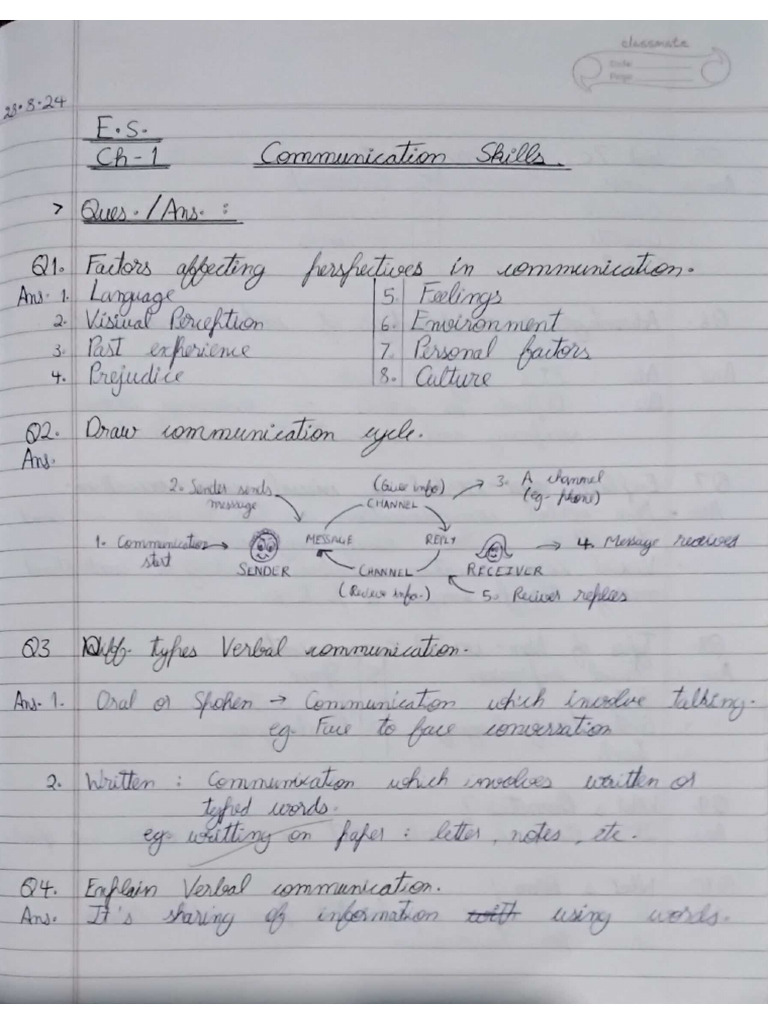 classmate
Date
Page
28.8.24
E.S.
Ch-1 Communication Skills.
> Ques./Ans. :
Q1. Factors affecting perspectives in communication.
Ans. 1. Language 5. Feelings
2. Visiual Perception 6. Environment
3. Past experience 7. Personal factors
4. Prejudice 8. Culture
Q2. Draw communication cycle.
Ans.
2. Sender sends message
(Gives info)
CHANNEL
3. A channel (eg- phone)
1. Communication start
SENDER
MESSAGE
REPLY
RECEIVER
4. Message received
CHANNEL
(Recieve info.)
5. Reciver replies
Q3 Diff. types Verbal communication.
Ans. 1. Oral or Spoken → Communication which involve talking.
eg. Face to face conversation
2. Written : Communication which involves written or
typed words.
eg. writting on paper : letter, notes, etc.
Q4. Explain Verbal communication.
Ans. It's sharing of information with using words.